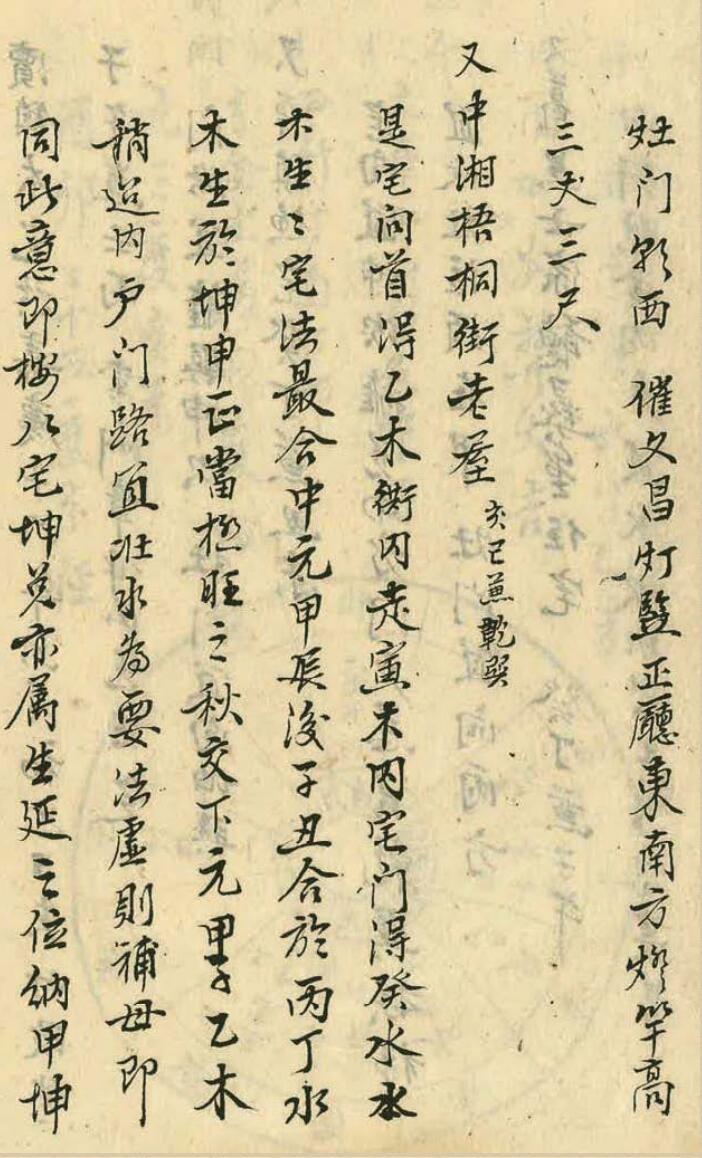 灶门彩西　催文昌灯竖正廳東南方灯竿高
三丈三尺
又中湘梧桐街老屋 亥巳兼乾巽
是宅向首得乙木街内走寅木内宅门得癸水水
木生〻宅法最合中元甲辰後子丑合於丙丁水
木生於坤申正當極旺之秋交下元甲子乙木
稍退内户门路宜壮水為要法虚則補母即
同此意即按八宅坤兑亦属生延之位納甲坤